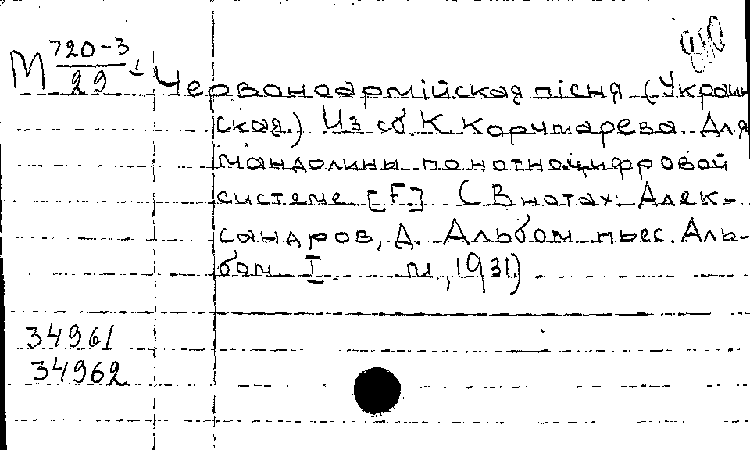 М 720-3
29
Червоноармійская пісня (Украин
ская.) Из сб К Корчмарева. Для
мандолины по нотноцифровой
системе [F.] (В нотах: Алек-
сандров, Д. Альбом пьес. Аль-
бом I. м, 1931)
34961
34962